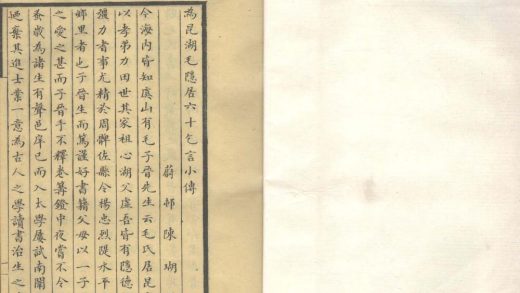 為昆湖毛隱居六十乞言小傳
蔚邨陳瑚
今海內皆知虞山有毛子晉先生云毛氏居昆
以孝弟力田世其家祖心湖父虛吾皆有隱德
彊力耆事尤精於周髀佐縣令楊忠烈隄水平
鄉里者也子晉生而篤謹好書籍父母以一子
之愛之甚而子晉手不釋卷篝鐙中夜嘗不令
蚤歲為諸生有聲邑庠已而入太學屢試南闈
迺棄其進士業一意為古人之學讀書治生之